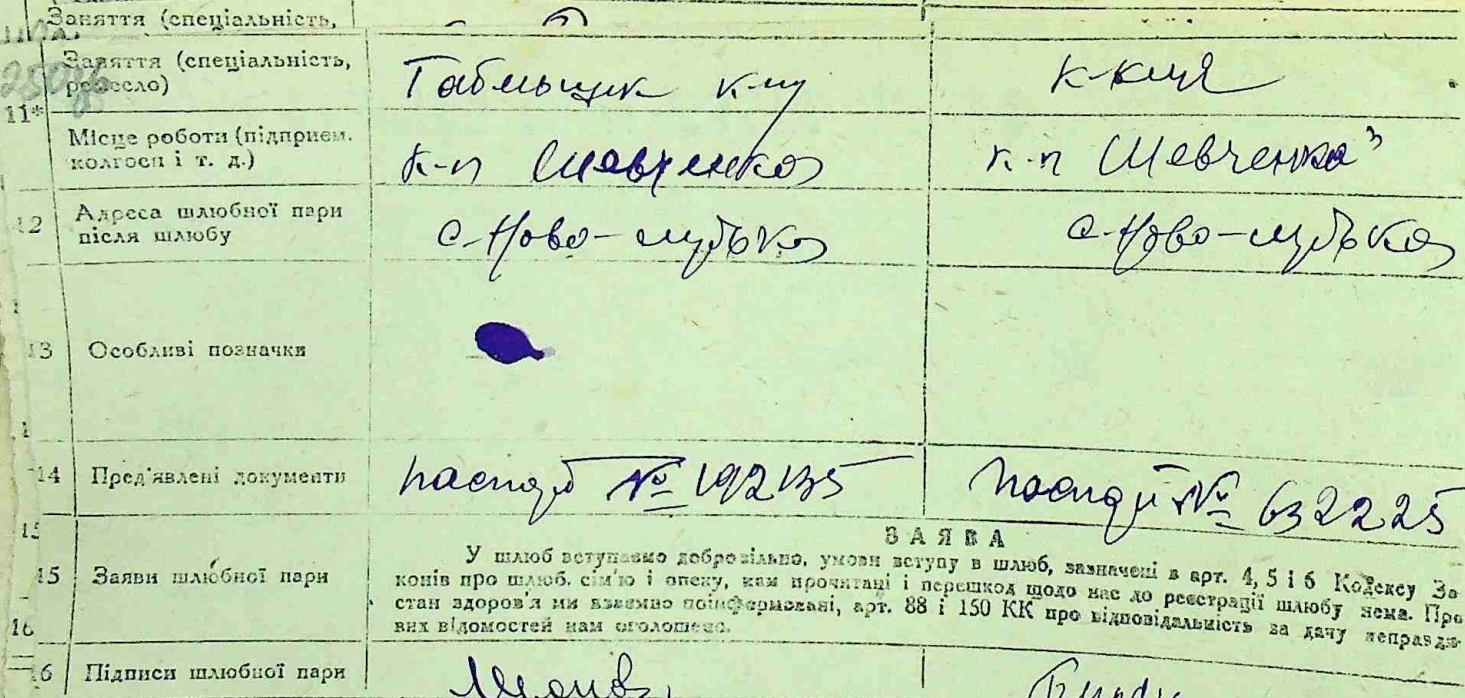 Заняття (спеціальність,
Заняття (спеціальність,
ремесло)
Табельщик к-пу
к-киця
11*
Місце роботи (підприєм.
колгосп і т. д.)
к-п Шевченко
к-п Шевченка"
12
Адреса шлюбної пари
після шлюбу
с-Ново-
с-Ново-
13
Особливі позначки
14
Пред'явлені документи
паспорт № 192135
паспорт № 632225
15
ЗАЯВА
15
Заяви шлюбної пари
У шлюб вступаємо добровільно, умови вступу в шлюб, зазначені в арт. 4, 5 і 6 Кодексу За
конів про шлюб, сім'ю і опеку, нам прочитані і перешкод щодо нас до реєстрації шлюбу нема. Про
стан здоров'я ми взаємно поінформовані, арт. 88 і 150 КК про відповідальність за дачу неправди-
вих відомостей нам оголошено.
16
6
Підписи шлюбної пари